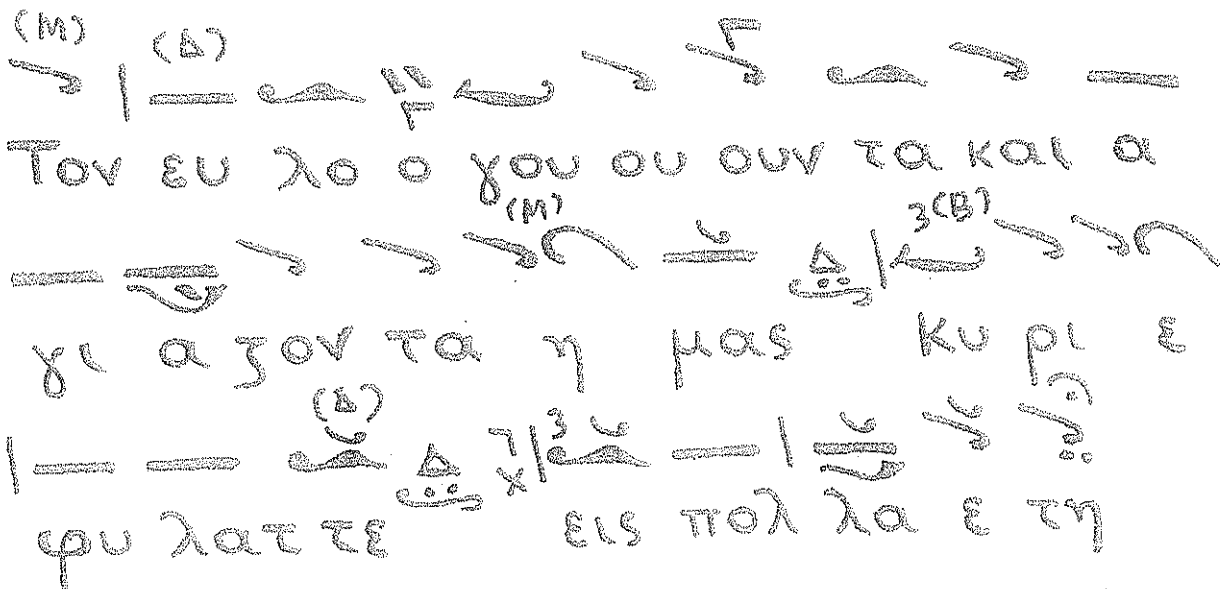 (Μ) (Δ)
Τον ευ λο ο γου ου ουν τα και α
(Μ) Δ 3(Β)
γι α ζον τα η μας κυ ρι ε
(Δ) Δ 3
φυ λατ τε εις πολ λα ε τη